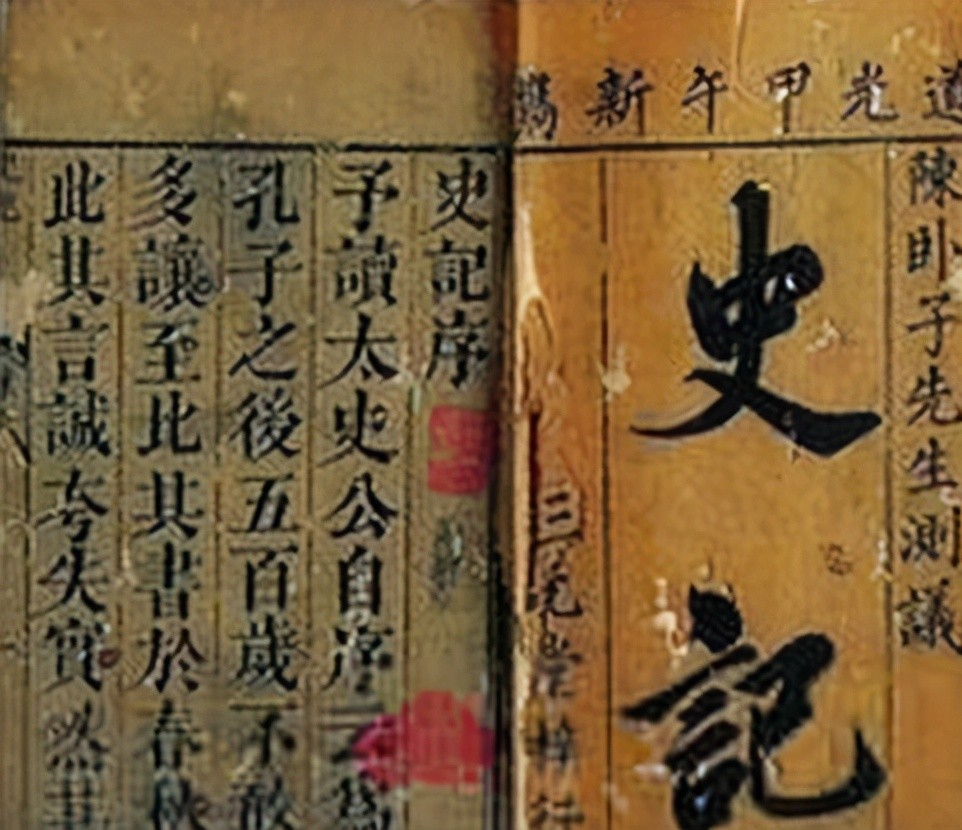 道光甲午新鐫
陳卧子先生測議
史記
三
梓行
史記序
予讀太史公自序為
孔子之後五百歲不敢
多讓至比其書於春秋
此其言誠夸失實然